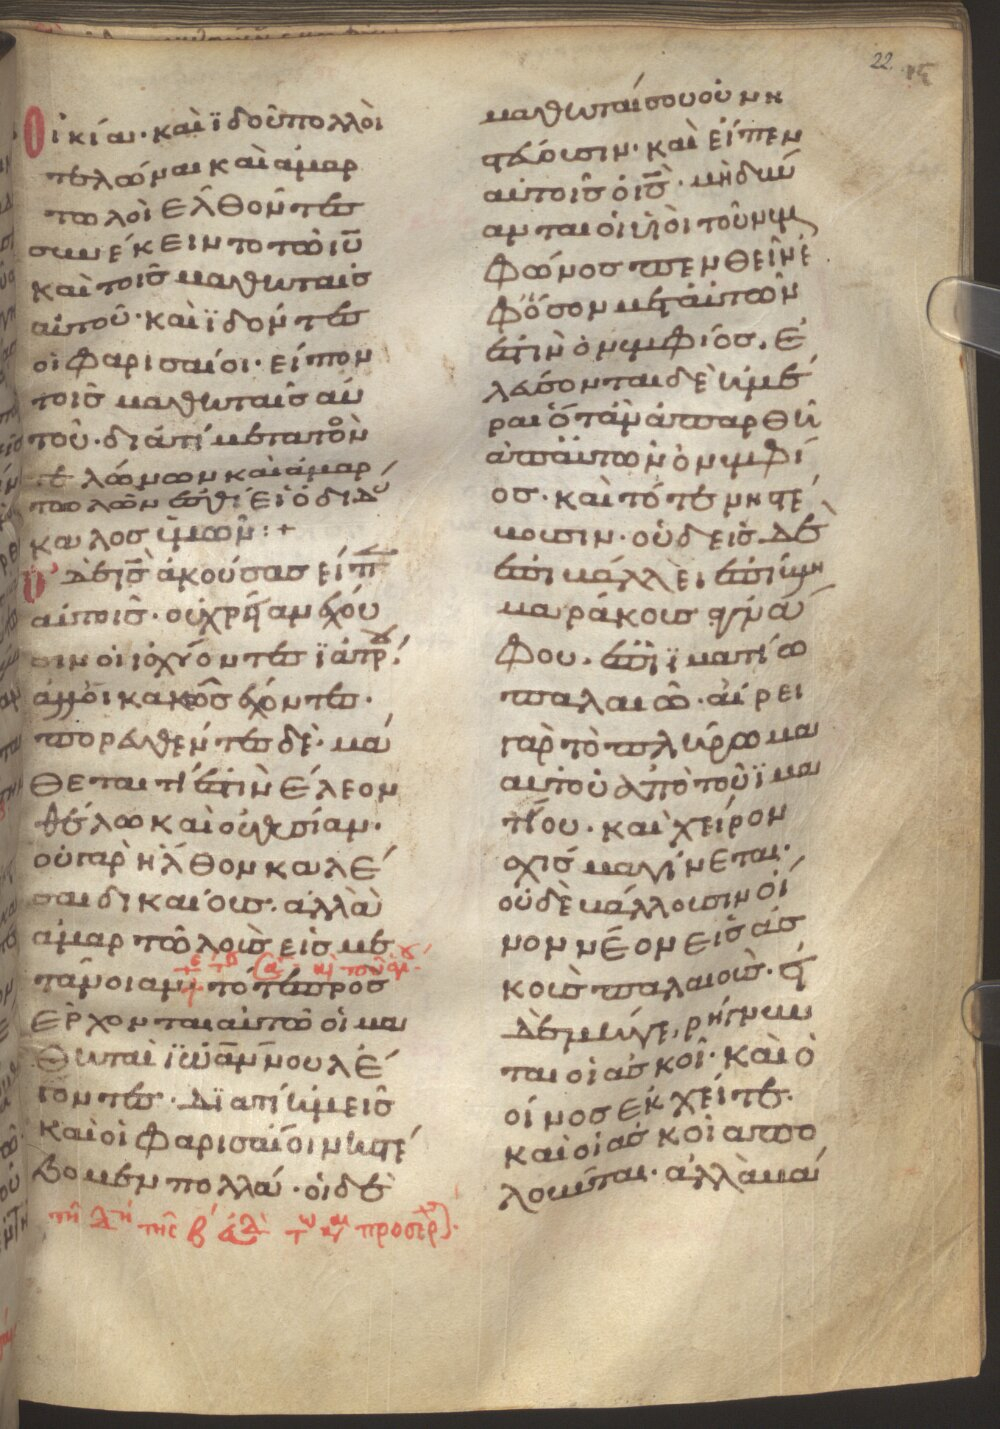 22
οἰκίαι· καὶ ἰδοὺ πολλοὶ
τελῶναι καὶ ἁμαρ
τωλοὶ ἐλθόντες
συνέκειντο τῶ ιυ
καὶ τοῖς μαθηταῖς
αὐτοῦ· καὶ ἰδόντες
οἱ φαρισαῖοι· εἶπον
τοῖς μαθηταῖς αὐ
τοῦ· διατί μετα τῶν
τελώνων καὶ ἁμαρ
τωλῶν ἐσθίει ὁ διδά
καλος ὑμῶν :+
Ὁ δὲ ις ἀκούσας εἶπ
αὐτοῖς· οὐ χρείαν ἔχου
σιν οἱ ἰσχύοντες ἰατρ
ἀλλ οἱ κακῶς ἔχοντες·
πορευθέντες δὲ· μά
θετε τί ἐστιν ἔλεον
θέλω καὶ οὐ θυσίαν·
οὐ γὰρ ἦλθον καλέ
σαι δικαίους· ἀλλὰ
ἁμαρτωλοὺς εἰς με
τάνοιαν· τότε προσ
ἔρχονται αὐτῶ οἱ μα
θηταὶ ἰωάννου λέ
γοντες· Διατί ἡμεῖς
καὶ οἱ φαρισαῖοι νηστέ
βομεν πολλά· οἱ δὲ
τῆς β προσερ
μαθηταί σου οὐ νη
στεύουσιν· καὶ εἶπεν
αὐτοῖς ὁ ις· μὴ δύν
ανται οἱ υἱοὶ τοῦ νυμ
φῶνος πενθεῖν ἐ
φ' ὅσον μετ' αὐτῶν
ἐστιν ὁ νυμφίος. Ἐ
λεύσονται δὲ ἡμέ
ραι ὅταν ἀπαρθῆ
ἀπ' αὐτῶν ὁ νυμφί
ος· καὶ τότε νηστέ
υουσιν· οὐδεὶς δὲ
ἐπιβάλλει ἐπίβλη
μα ράκους ἀγνά
φου· ἐπὶ ἱματίω
παλαιῶ· αἴρει
γὰρ τὸ πλήρωμα
αὐτοῦ ἀπὸ τοῦ ἱμα
τίου· καὶ χεῖρον
σχίσμα γίνεται·
οὐδὲ βάλλουσιν οἶ
νον νέον εἰς ἀσ
κοὺς παλαιούς· εἰ
δὲ μήγε, ρήγνυν
ται οἱ ἀσκοί· καὶ ὁ
οἶνος ἐκχεῖτε·
καὶ οἱ ἀσκοὶ ἀπο
λοῦνται· ἀλλὰ βά